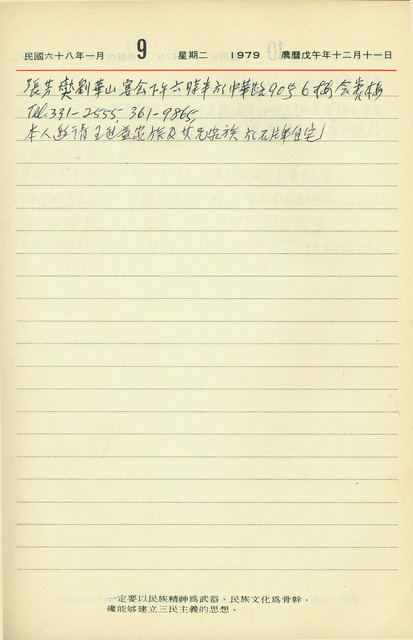 民國六十八年一月 9 星期二 1979 農曆戊午年十二月十一日
劉華山宴会下午六時半於中華路90号6樓会賓樓
Tel. 331-2555, 361-9865
本人邀請王 家族及其兄家族於石牌自宅
一定要以民族精神爲武器、民族文化爲骨幹，
纔能够建立三民主義的思想。